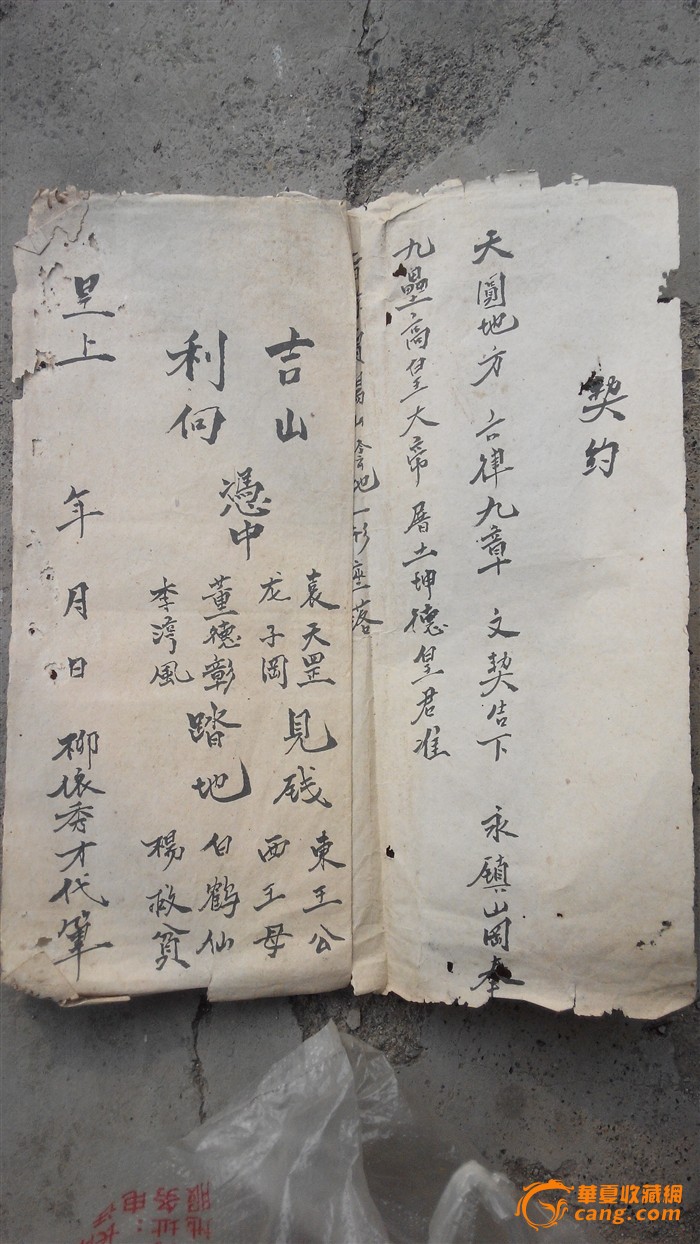 契約
天圓地方 六律九章 文契告下 永鎮山岡奉
九壘高皇大帝 厝土坤德皇君准
山 地一形座落
吉山
利向
憑中
袁天罡
龙子岡
董德彰
李淳風
見戋
踏地
東王公
西王母
白鶴仙
楊救貧
皇上
年 月 日 柳 秀才代筆
地址：
服务电
華夏收藏網
cang.com